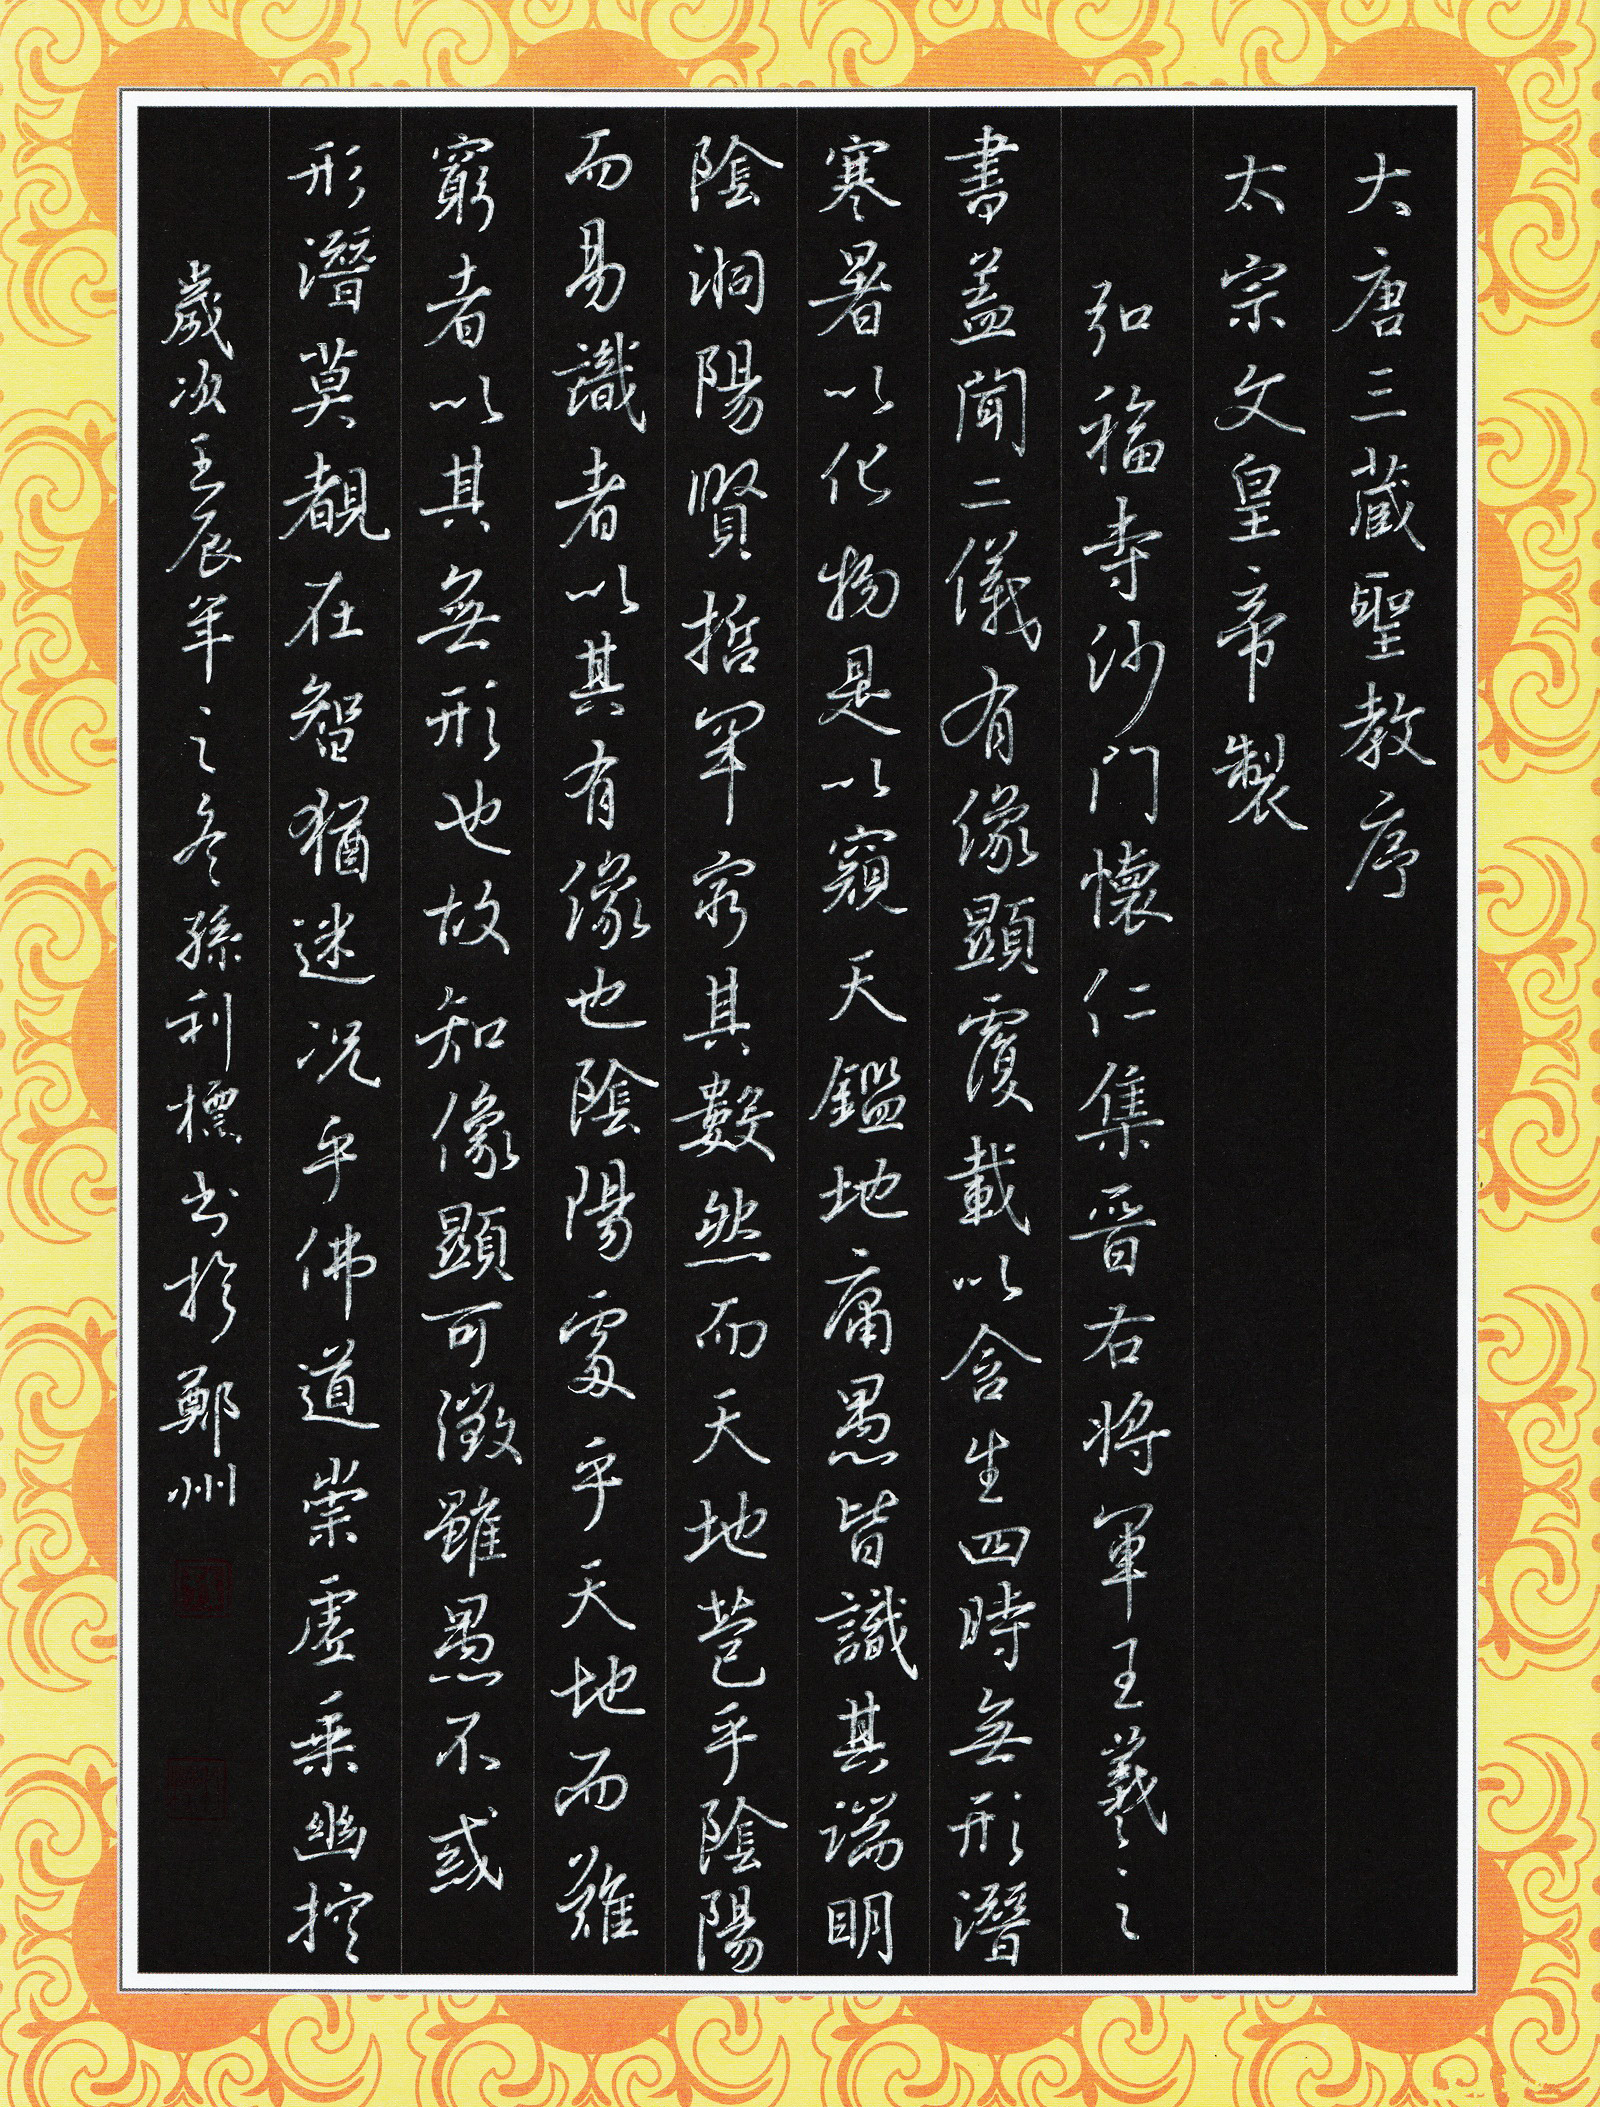 大唐三藏聖教序
太宗文皇帝製
弘福寺沙門懷仁集晉右將軍王羲之
書蓋聞二儀有像顯覆載以含生四時無形潛
寒暑以化物是以窺天鑑地庸愚皆識其端明
陰洞陽賢哲罕窮其數然而天地苞乎陰陽
而易識者以其有像也陰陽處乎天地而難
窮者以其無形也故知像顯可徵雖愚不惑
形潛莫覩在智猶迷況乎佛道崇虛乘幽控
歲次壬辰年之冬孫利標书於鄭州